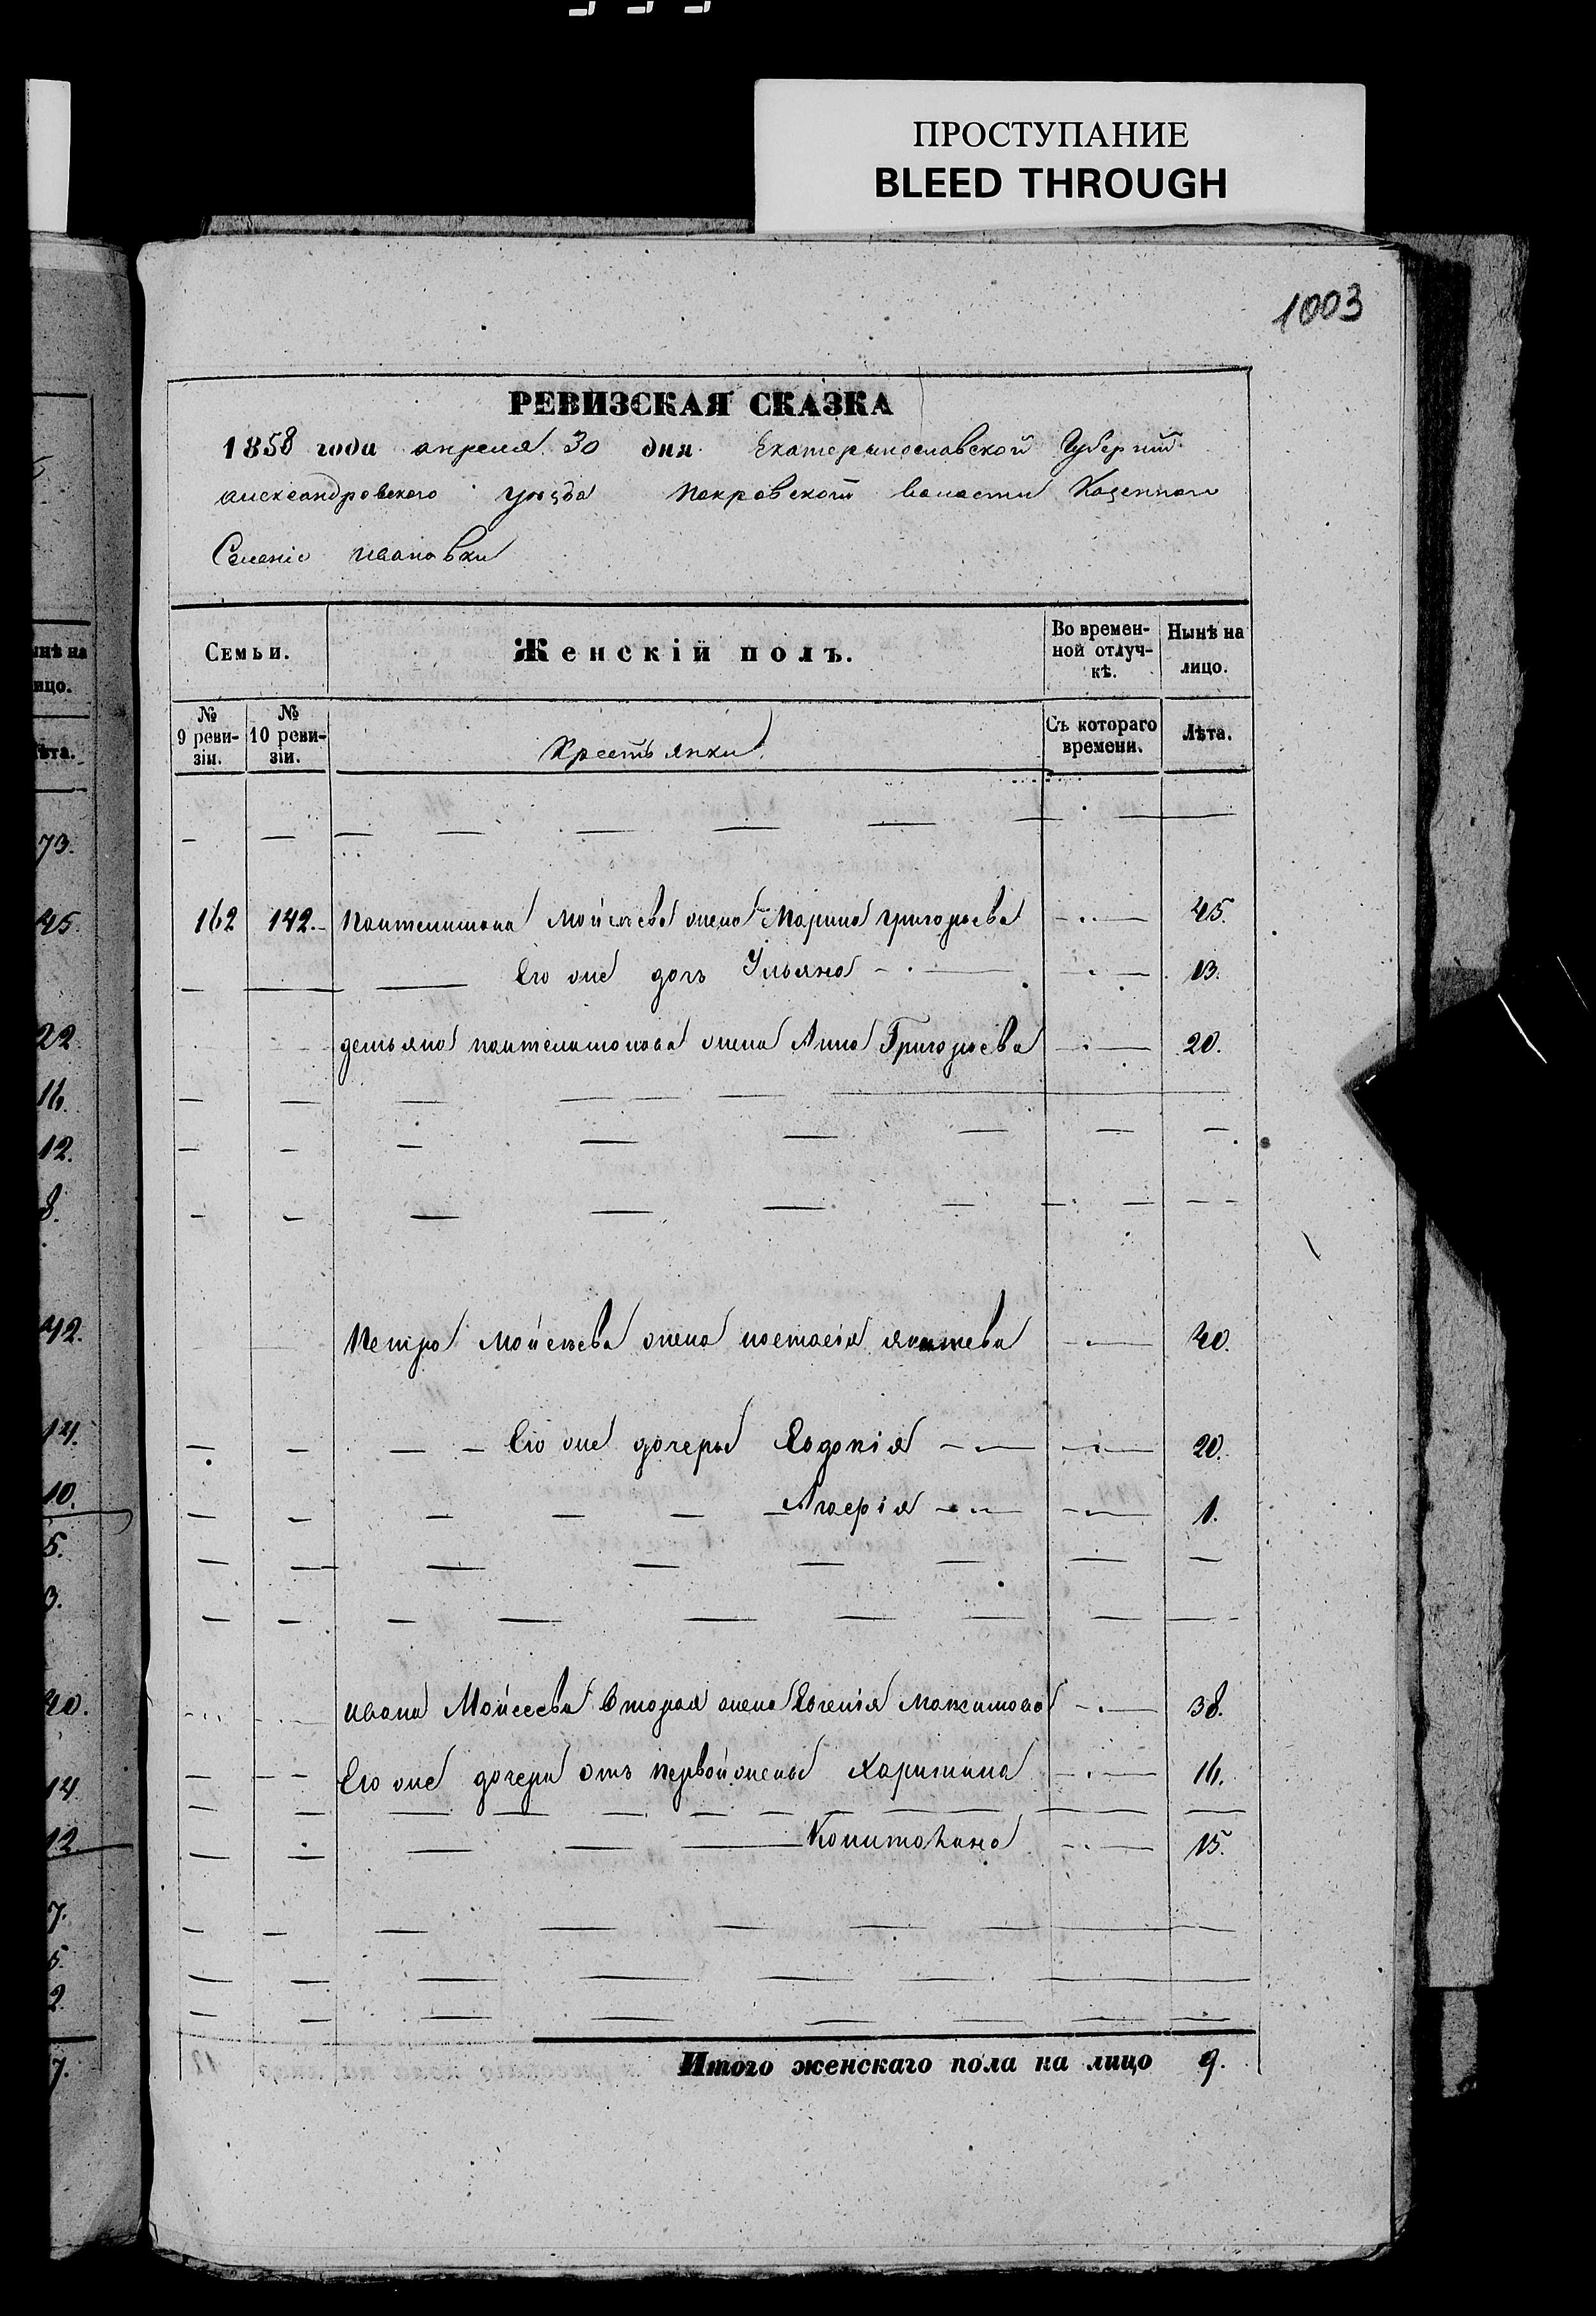 ПРОСТУПАНИЕ
BLEED THROUGH
1003
РЕВИЗСКАЯ СКАЗКА
1858 года апреля 30 дня Екатериносла­вской Губернии
александровского уезда Покровской воласти Казенного
Селенiе ивановки
Семьи. Женскій полъ. Во времен-ной отлуч-кѣ. Нынѣ на лицо.
№ 9 реви-зіи. № 10 реви-зіи. Крестьянки Съ котораго времени. Лѣта.
162 142. Пантелимона Мойсеева жена Марина григорьева 45.
Его же дочь Ульяна 13.
демьяна пантелимонова жена Анна Григорьева 20.
Петра Мойсеева жена настасія 40.
Его же дочери Евдокія 20.
1.
ивана Мойсеева вторая жена Евгенія Максимова 38.
Его же дочери отъ первой жены Харитина 16.
15.
Итого женскаго пола на лицо 9.
ынѣ на
ицо.
ѣта.
73.
45.
22.
16.
12.
8.
42.
14.
10.
5.
3.
40.
14.
12.
7.
5.
2.
7.